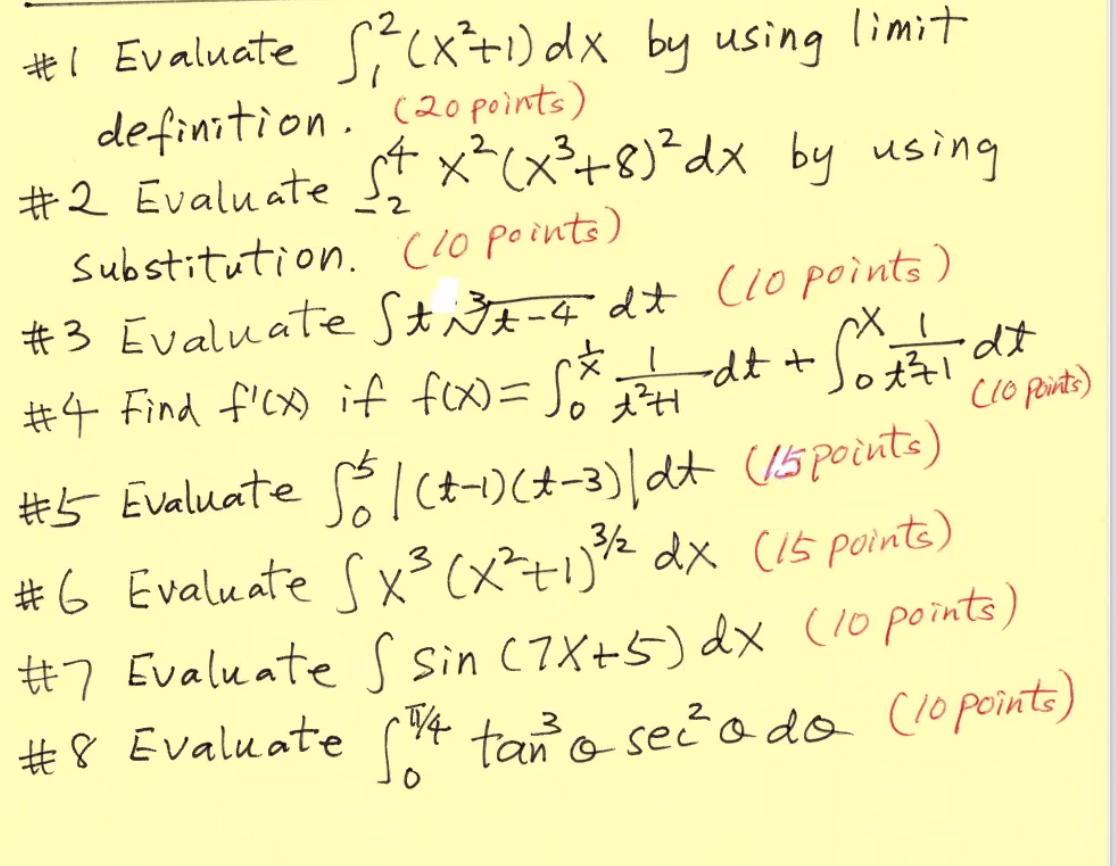 #1 Evaluate ∫₁²(x²+1)dx by using limit
definition. (20 points)
#2 Evaluate ∫₋₂⁴ x²(x³+8)²dx by using
substitution. (10 points)
#3 Evaluate ∫t ∛(t-4) dt (10 points)
#4 Find f'(x) if f(x) = ∫₀^(1/x) 1/(t²+1) dt + ∫₀ˣ 1/(t²+1) dt (10 points)
#5 Evaluate ∫₀⁵ |(t-1)(t-3)|dt (15 points)
#6 Evaluate ∫x³(x²+1)^(3/2) dx (15 points)
#7 Evaluate ∫ sin (7x+5) dx (10 points)
#8 Evaluate ∫₀^(π/4) tan³θ sec²θ dθ (10 points)